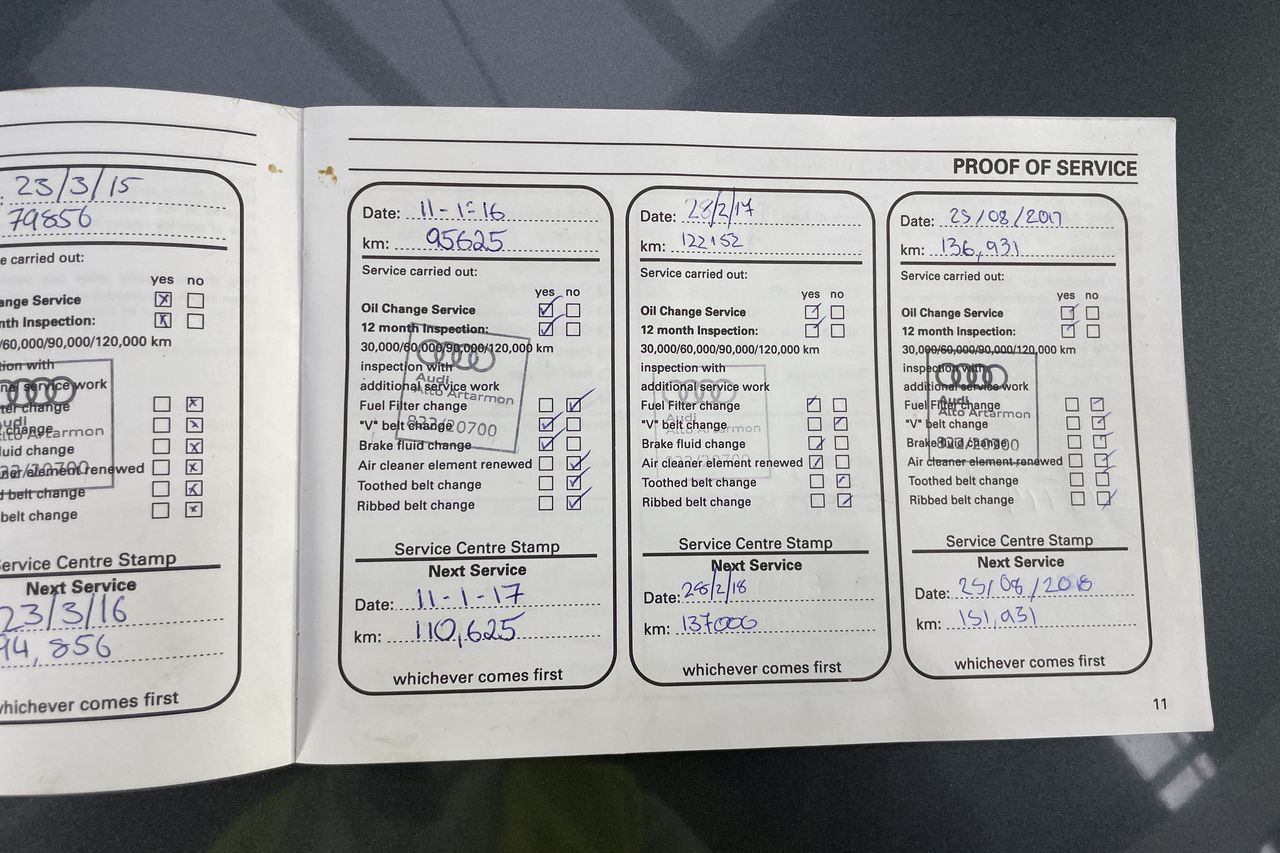 23/3/15
79856
e carried out:
yes no
ange Service
nth Inspection:
/60,000/90,000/120,000 km
tion with
nal service work
ter change
t change
luid change
ner element renewed
d belt change
belt change
Audi
Alto Artarmon
822/20700
Service Centre Stamp
Next Service
23/3/16
94,856
whichever comes first
PROOF OF SERVICE
Date: 11-1-16
km: 95625
Service carried out:
yes no
Oil Change Service
12 month Inspection:
30,000/60,000/90,000/120,000 km
inspection with
additional service work
Fuel Filter change
"V" belt change
Brake fluid change
Air cleaner element renewed
Toothed belt change
Ribbed belt change
Audi
Alto Artarmon
822/20700
Service Centre Stamp
Next Service
Date: 11-1-17
km: 110,625
whichever comes first
Date: 28/2/17
km: 122152
Service carried out:
yes no
Oil Change Service
12 month Inspection:
30,000/60,000/90,000/120,000 km
inspection with
additional service work
Fuel Filter change
"V" belt change
Brake fluid change
Air cleaner element renewed
Toothed belt change
Ribbed belt change
Audi
Alto Artarmon
822/20700
Service Centre Stamp
Next Service
Date: 28/2/18
km: 137000
whichever comes first
Date: 25/08/2017
km: 136,931
Service carried out:
yes no
Oil Change Service
12 month Inspection:
30,000/60,000/90,000/120,000 km
inspection with
additional service work
Fuel Filter change
"V" belt change
Brake fluid change
Air cleaner element renewed
Toothed belt change
Ribbed belt change
Audi
Alto Artarmon
822/20700
Service Centre Stamp
Next Service
Date: 25/08/2018
km: 151,931
whichever comes first
11